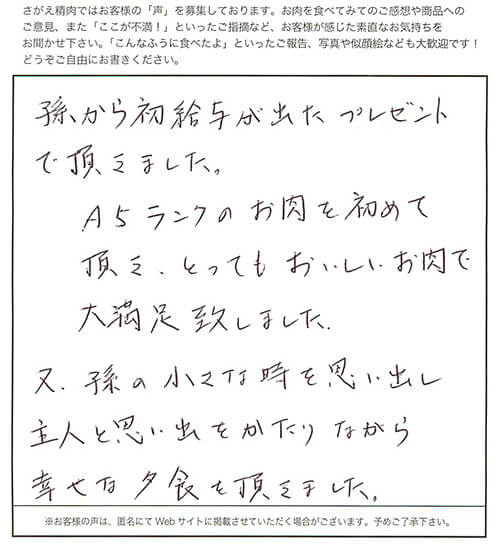 さがえ精肉ではお客様の「声」を募集しております。お肉を食べてみてのご感想や商品への
ご意見、また「ここが不満！」といったご指摘など、お客様が感じた素直なお気持ちを
お聞かせ下さい。「こんなふうに食べたよ」といったご報告、写真や似顔絵なども大歓迎です！
どうぞご自由にお書きください。
孫から初給与が出たプレゼント
で頂きました。
A5ランクのお肉を初めて
頂き、とってもおいしいお肉で
大満足致しました.
又、孫の小さな時を思い出し
主人と思い出をかたりながら
幸せな夕食を頂きました。
※お客様の声は、匿名にてWebサイトに掲載させていただく場合がございます。予めご了承下さい。